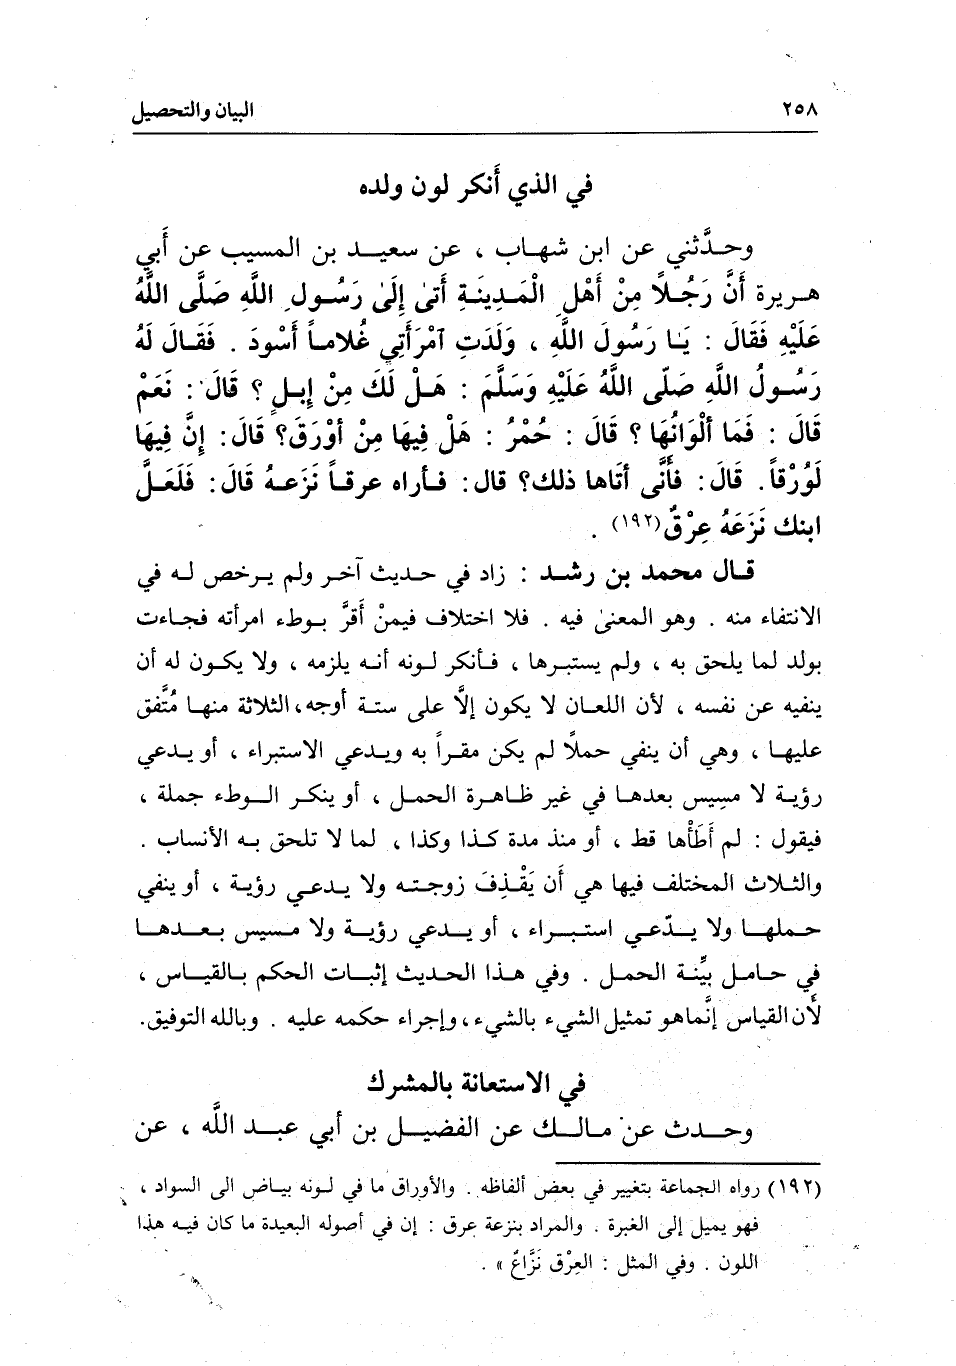 ٢٥٨ البيان والتحصيل
في الذي أَنكر لون ولده
وحدَّثني عن ابن شهاب ، عن سعيد بن المسيب عن أَبي
هريرة أَنَّ رَجُلاً مِنْ أَهْلِ الْمَدِينَةِ أَتىٰ إِلَىٰ رَسُولِ اللَّهِ صَلَّى اللَّهُ
عَلَيْهِ فَقَالَ : يَا رَسُولَ اللَّهِ ، وَلَدَتِ آمْرَأَتِي غُلاماً أَسْودَ . فَقَالَ لَهُ
رَسُولُ اللَّهِ صَلّى اللَّهُ عَلَيْهِ وَسَلَّمَ : هَلْ لَكَ مِنْ إِبلٍ ؟ قَالَ : نَعَمْ
قَالَ : فَمَا أَلْوَانُهَا ؟ قَالَ : حُمْرُ : هَلْ فِيهَا مِنْ أَوْرَقَ؟ قَالَ: إِنَّ فِيهَا
لَوُرْقاً. قَالَ: فأَنَّى أَتَاها ذلك؟ قال: فأراه عرقاً نَزَعهُ قَالَ: فَلَعَلَّ
ابنك نَزَعَهُ عِرْقٌ(١٩٢) .
قال محمد بن رشد : زاد في حديث آخر ولم يرخص له في
الانتفاء منه . وهو المعنىٰ فيه . فلا اختلاف فيمنْ أَقرَّ بوطء امرأته فجاءت
بولد لما يلحق به ، ولم يستبرها ، فأنكر لونه أنه يلزمه ، ولا يكون له أن
ينفيه عن نفسه ، لأن اللعان لا يكون إلَّا على ستة أوجه، الثلاثة منها مُتَّفق
عليها ، وهي أن ينفي حملاً لم يكن مقراً به ويدعي الاستبراء ، أو يدعي
رؤية لا مسِيس بعدها في غير ظاهرة الحمل ، أو ينكر الوطء جملة ،
فيقول : لم أَطَأْها قط ، أو منذ مدة كذا وكذا ، لما لا تلحق به الأنساب .
والثلاث المختلف فيها هي أَن يَقْذِفَ زوجته ولا يدعي رؤية ، أو ينفي
حملها ولا يدّعي استبراء ، أو يدعي رؤية ولا مسيس بعدها
في حامل بيِّنة الحمل . وفي هذا الحديث إثبات الحكم بالقياس ،
لأَن القياس إنَّما هو تمثيل الشيء بالشيء، وإجراء حكمه عليه . وبالله التوفيق.
في الاستعانة بالمشرك
وحدث عن مالك عن الفضيل بن أبي عبد اللَّه ، عن
(١٩٢) رواه الجماعة بتغيير في بعض ألفاظه . والأوراق ما في لونه بياض الى السواد ،
فهو يميل إلى الغبرة . والمراد بنزعة عرق : إن في أصوله البعيدة ما كان فيه هذا
اللون . وفي المثل : العِرْق نَزَّاعٌ » .